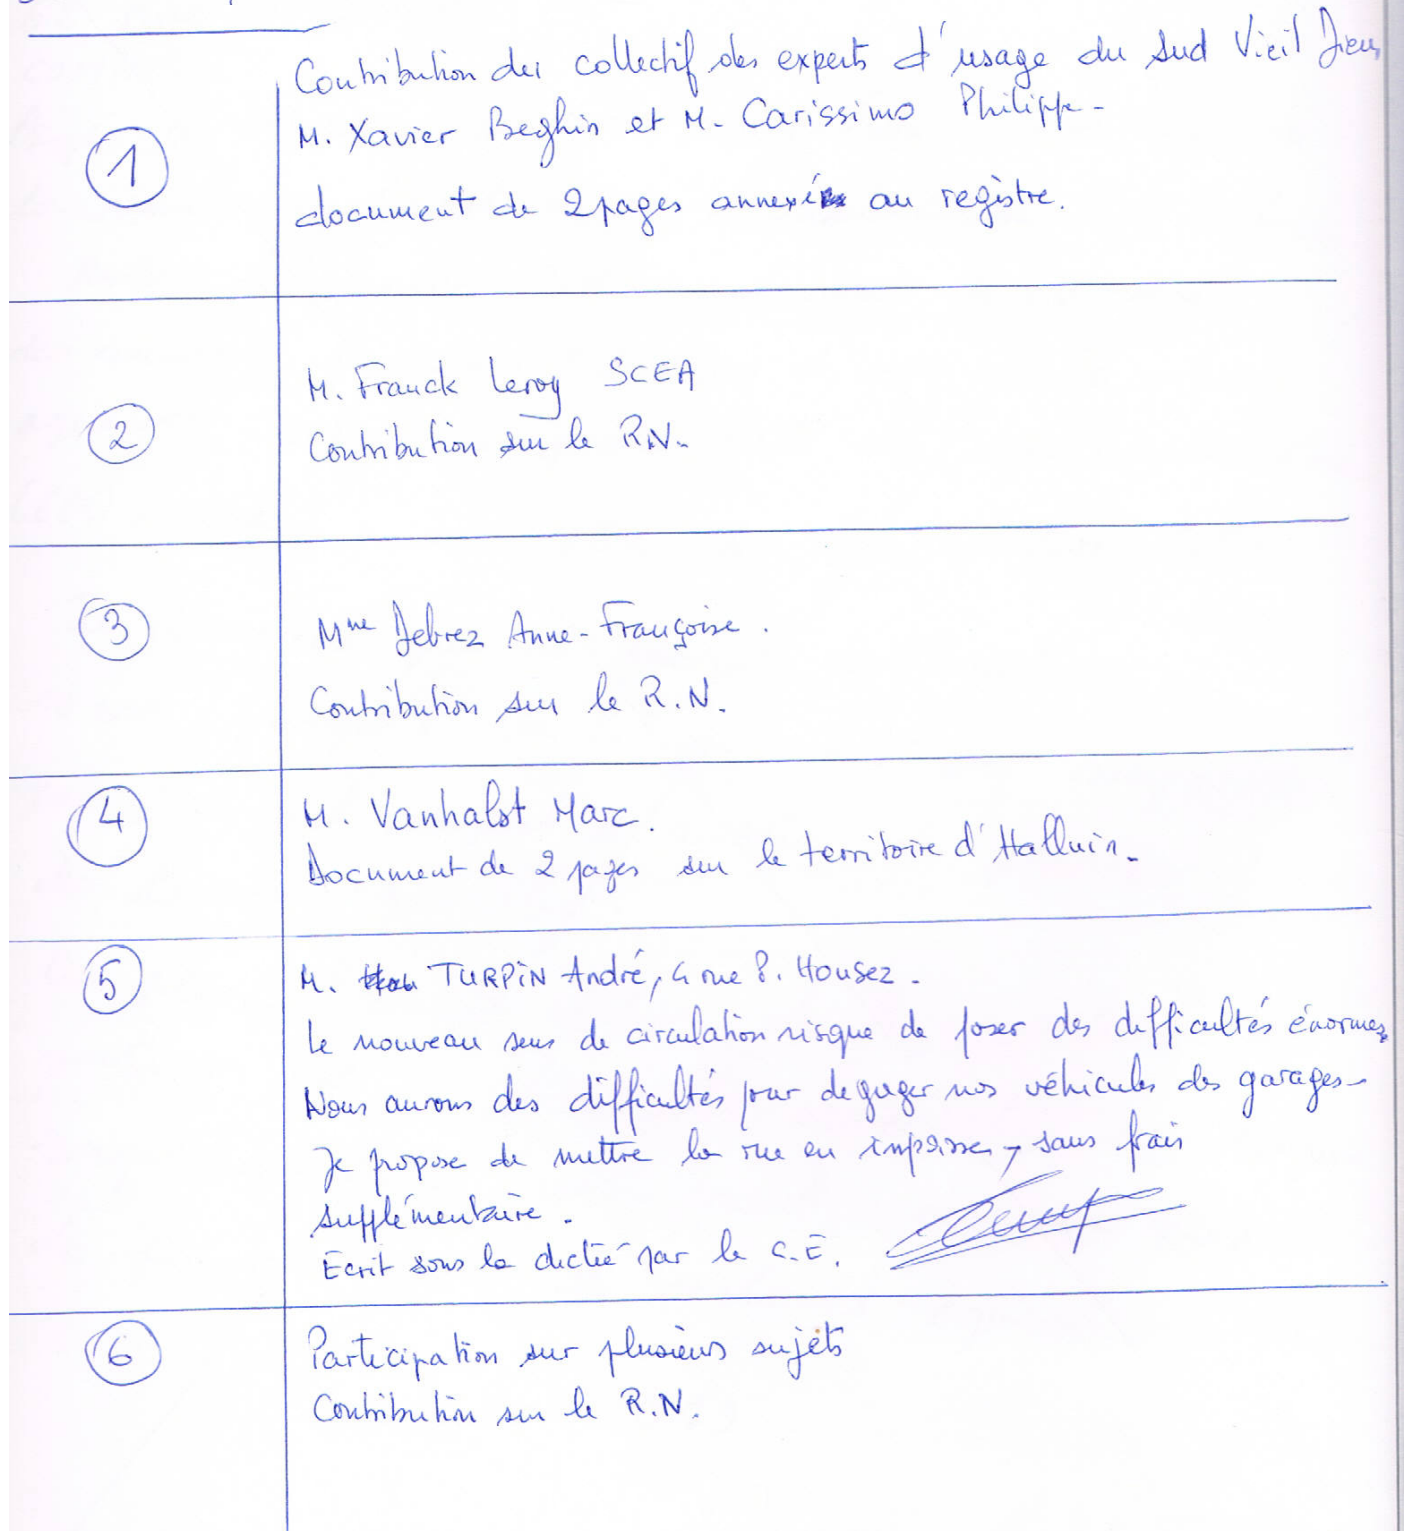 1
Contribution du collectif des experts d'usage du Sud Vieil Dieu
M. Xavier Beghin et M. Carissimo Philippe -
document de 2 pages annexé au registre.
2
M. Franck Leroy SCEA
Contribution sur le R.N.
3
Mme Debrez Anne-Françoise.
Contribution sur le R.N.
4
M. Vanhalst Marc.
Document de 2 pages sur le territoire d'Halluin.
5
M. TURPIN André, 4 rue P. Housez.
Le nouveau sens de circulation risque de poser des difficultés énormes.
Nous aurons des difficultés pour degager nos véhicules des garages -
Je propose de mettre la rue en impasse, sans frais
supplémentaire.
Ecrit sous la dictée par le C.E.
6
Participation sur plusieurs sujets
Contribution sur le R.N.